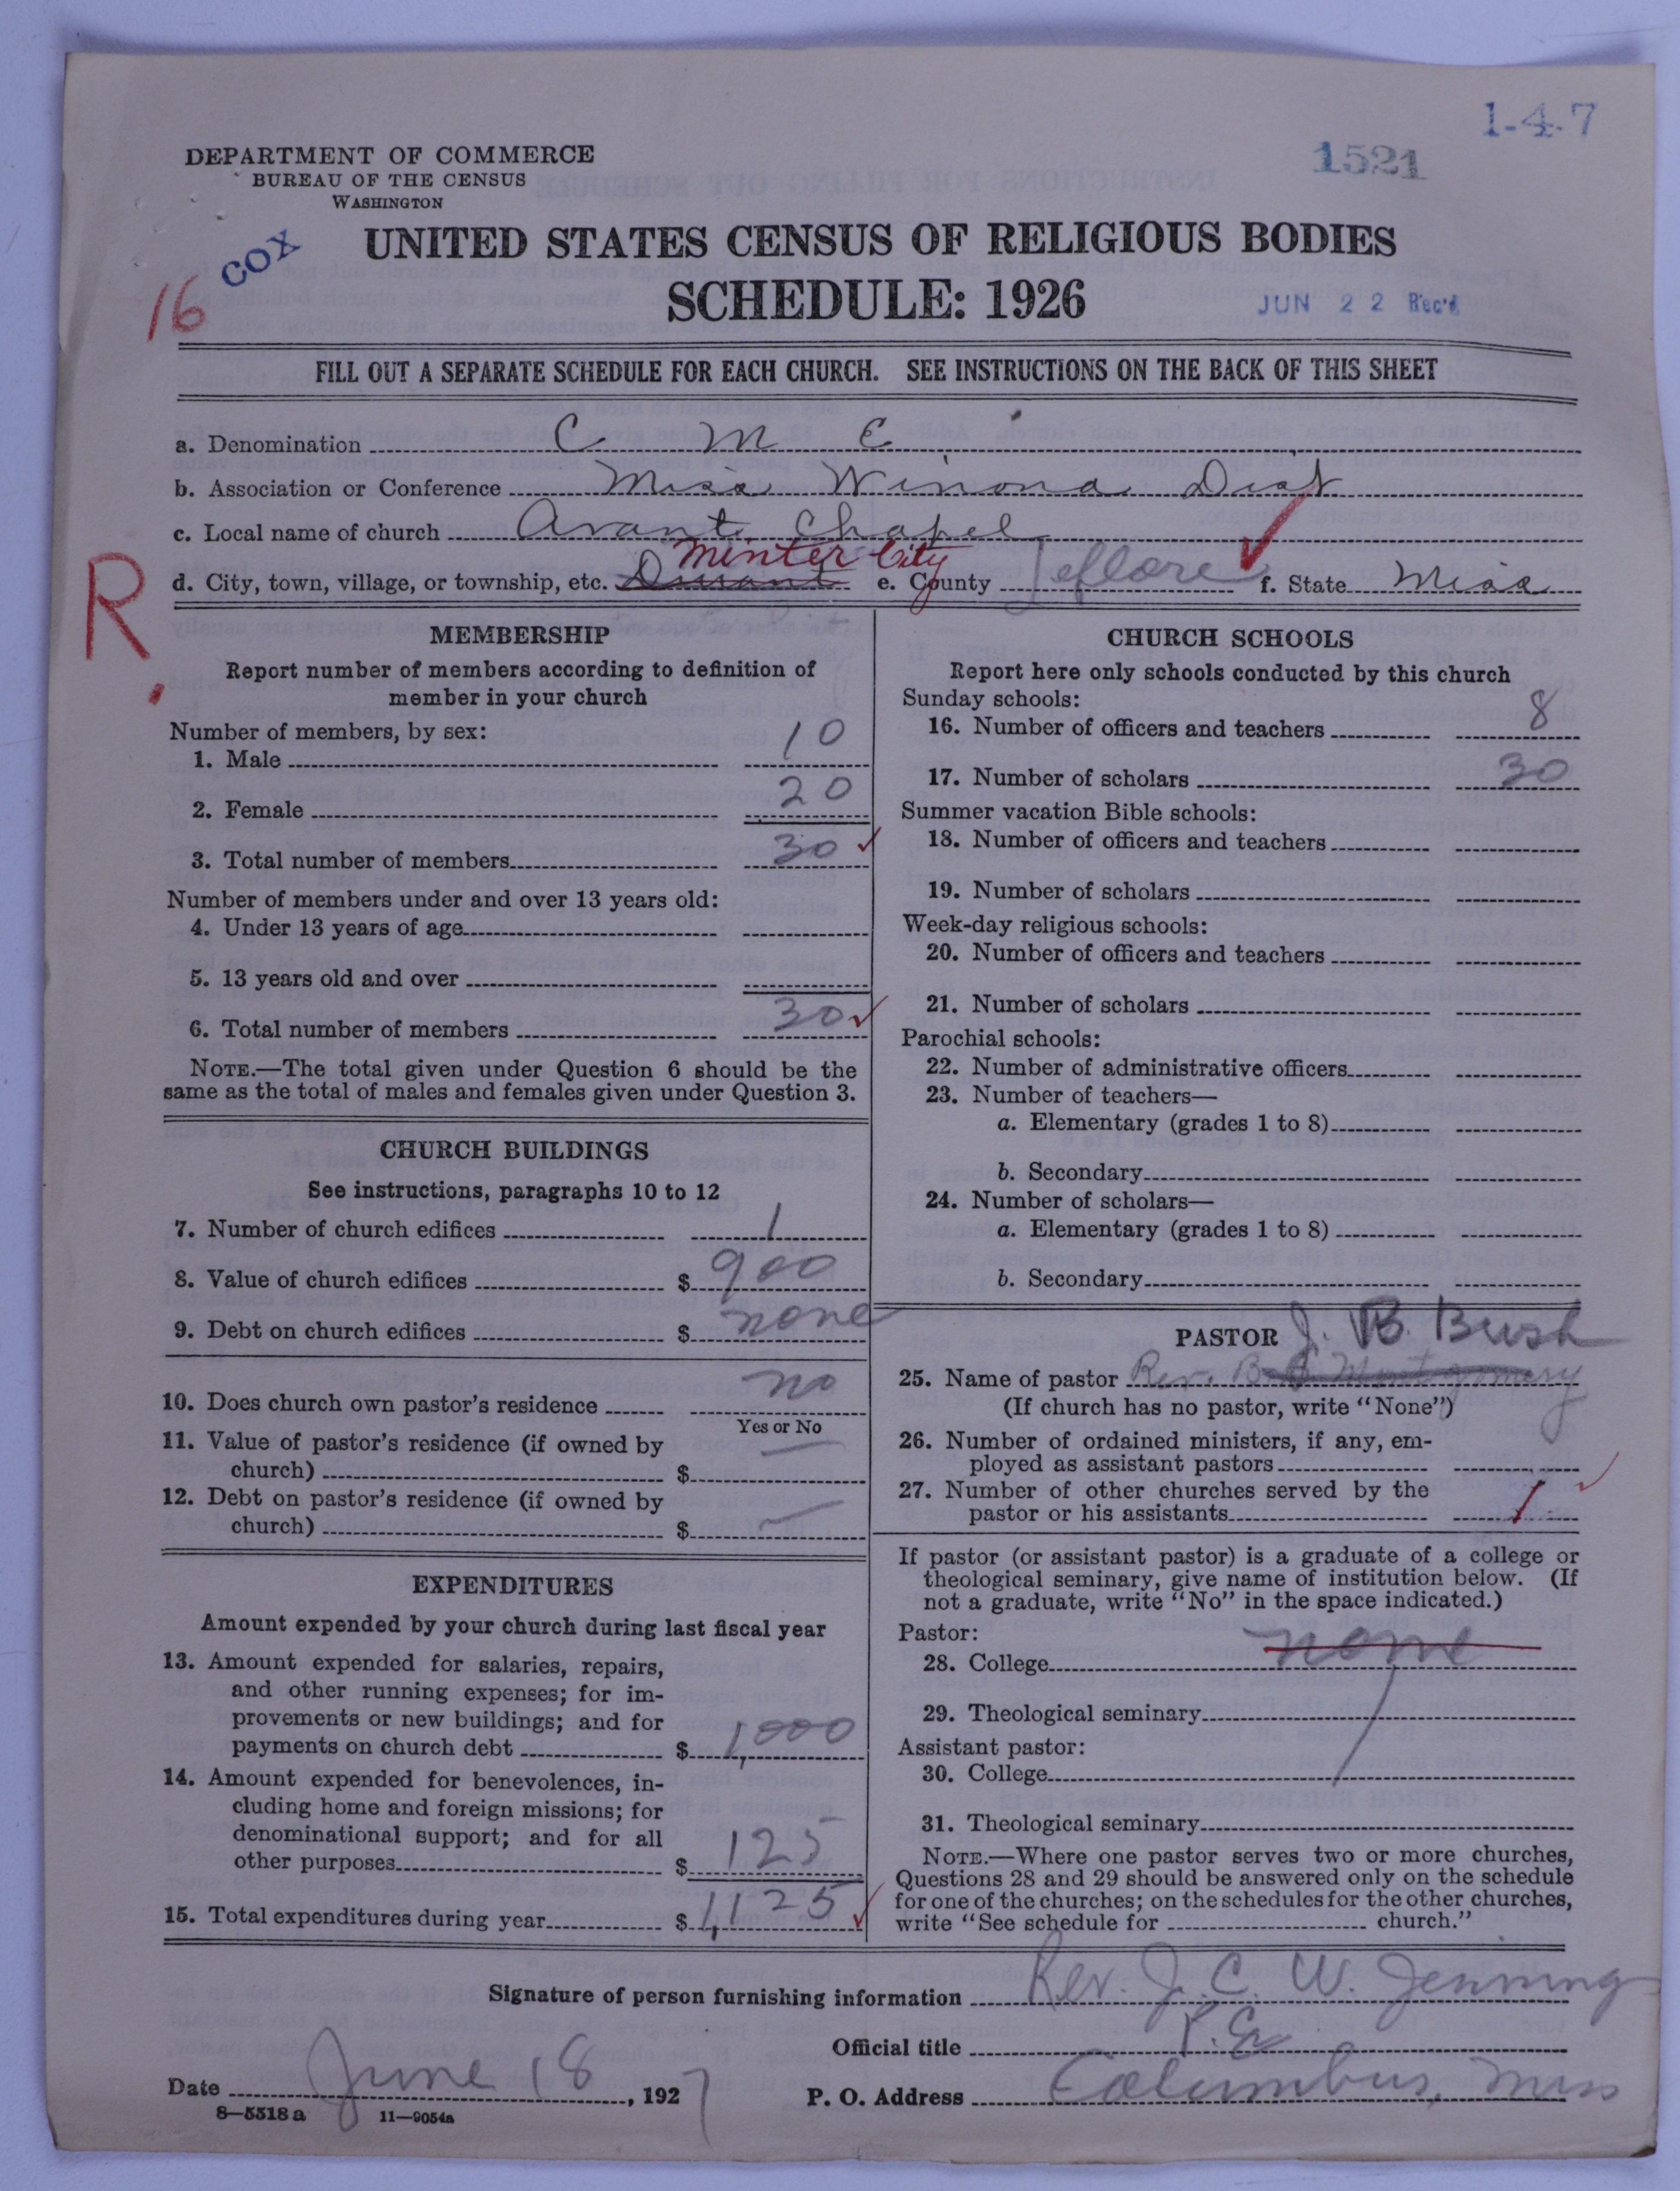 1-4-7
1521
DEPARTMENT OF COMMERCE
BUREAU OF THE CENSUS
WASHINGTON
COX
16
UNITED STATES CENSUS OF RELIGIOUS BODIES
SCHEDULE: 1926
JUN 22 Rec'd
FILL OUT A SEPARATE SCHEDULE FOR EACH CHURCH. SEE INSTRUCTIONS ON THE BACK OF THIS SHEET
a. Denomination C M E
b. Association or Conference Miss Winona Dist
c. Local name of church Avant Chapel
Minter City
R.
d. City, town, village, or township, etc. Durant e. County Leflore f. State Miss
MEMBERSHIP
Report number of members according to definition of
member in your church
Number of members, by sex:
1. Male 10
2. Female 20
3. Total number of members 30
Number of members under and over 13 years old:
4. Under 13 years of age
5. 13 years old and over
6. Total number of members 30
NOTE.—The total given under Question 6 should be the
same as the total of males and females given under Question 3.
CHURCH BUILDINGS
See instructions, paragraphs 10 to 12
7. Number of church edifices 1
8. Value of church edifices $ 900
9. Debt on church edifices $ none
10. Does church own pastor's residence no
Yes or No
11. Value of pastor's residence (if owned by
church) $ —
12. Debt on pastor's residence (if owned by
church) $ —
EXPENDITURES
Amount expended by your church during last fiscal year
13. Amount expended for salaries, repairs,
and other running expenses; for im-
provements or new buildings; and for
payments on church debt $ 1,000
14. Amount expended for benevolences, in-
cluding home and foreign missions; for
denominational support; and for all
other purposes $ 125
15. Total expenditures during year $ 1,125
CHURCH SCHOOLS
Report here only schools conducted by this church
Sunday schools:
16. Number of officers and teachers 8
17. Number of scholars 30
Summer vacation Bible schools:
18. Number of officers and teachers
19. Number of scholars
Week-day religious schools:
20. Number of officers and teachers
21. Number of scholars
Parochial schools:
22. Number of administrative officers
23. Number of teachers—
a. Elementary (grades 1 to 8)
b. Secondary
24. Number of scholars—
a. Elementary (grades 1 to 8)
b. Secondary
PASTOR J. B. Bush
25. Name of pastor Rev. B. Montgomery
(If church has no pastor, write "None")
26. Number of ordained ministers, if any, em-
ployed as assistant pastors
27. Number of other churches served by the
pastor or his assistants 1
If pastor (or assistant pastor) is a graduate of a college or
theological seminary, give name of institution below. (If
not a graduate, write "No" in the space indicated.)
Pastor:
28. College none
29. Theological seminary
Assistant pastor:
30. College
31. Theological seminary
NOTE.—Where one pastor serves two or more churches,
Questions 28 and 29 should be answered only on the schedule
for one of the churches; on the schedules for the other churches,
write "See schedule for church."
Signature of person furnishing information Rev. J. C. W. Jennings
Official title P. E.
Date June 18, 1927 P. O. Address Columbus, Miss
8—5518 a 11—9054a